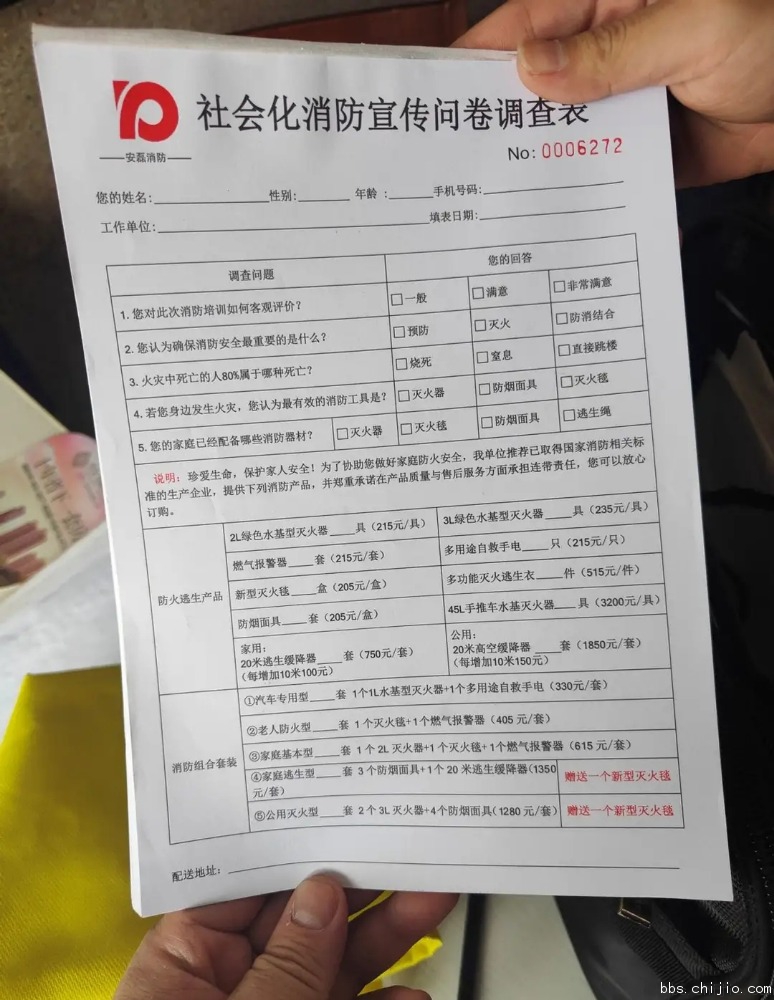 社会化消防宣传问卷调查表
安磊消防
No: 0006272
您的姓名: 性别: 年龄 : 手机号码:
工作单位: 填表日期:
调查问题 您的回答
1. 您对此次消防培训如何客观评价? □一般 □满意 □非常满意
2. 您认为确保消防安全最重要的是什么? □预防 □灭火 □防消结合
3. 火灾中死亡的人80%属于哪种死亡? □烧死 □窒息 □直接跳楼
4. 若您身边发生火灾, 您认为最有效的消防工具是? □灭火器 □防烟面具 □灭火毯
5. 您的家庭已经配备哪些消防器材? □灭火器 □灭火毯 □防烟面具 □逃生绳
说明: 珍爱生命, 保护家人安全! 为了协助您做好家庭防火安全, 我单位推荐已取得国家消防相关标
准的生产企业, 提供下列消防产品, 并郑重承诺在产品质量与售后服务方面承担连带责任, 您可以放心
订购。
防火逃生产品
2L绿色水基型灭火器____具 (215元/具) 3L绿色水基型灭火器____具 (235元/具)
燃气报警器____套 (215元/套) 多用途自救手电____只 (215元/只)
新型灭火毯____盒 (205元/盒) 多功能灭火逃生衣____件 (515元/件)
防烟面具____套 (205元/盒) 45L手推车水基灭火器____具 (3200元/具)
家用: 公用:
20米逃生缓降器____套 (750元/套) 20米高空缓降器 ____套 (1850元/套)
(每增加10米100元) (每增加10米150元)
消防组合套装
①汽车专用型____套 1个1L水基型灭火器+1个多用途自救手电 (330元/套)
②老人防火型____套 1 个灭火毯+1个燃气报警器 (405 元/套)
③家庭基本型____套 1 个 2L 灭火器+1 个灭火毯+ 1个燃气报警器 (615 元/套)
④家庭逃生型____套 3 个防烟面具+1 个 20 米逃生缓降器(1350 赠送一个新型灭火毯
元/套)
⑤公用灭火型____套 2 个 3L 灭火器+4个防烟面具( 1280 元/套) 赠送一个新型灭火毯
配送地址:
bbs.chijio.com